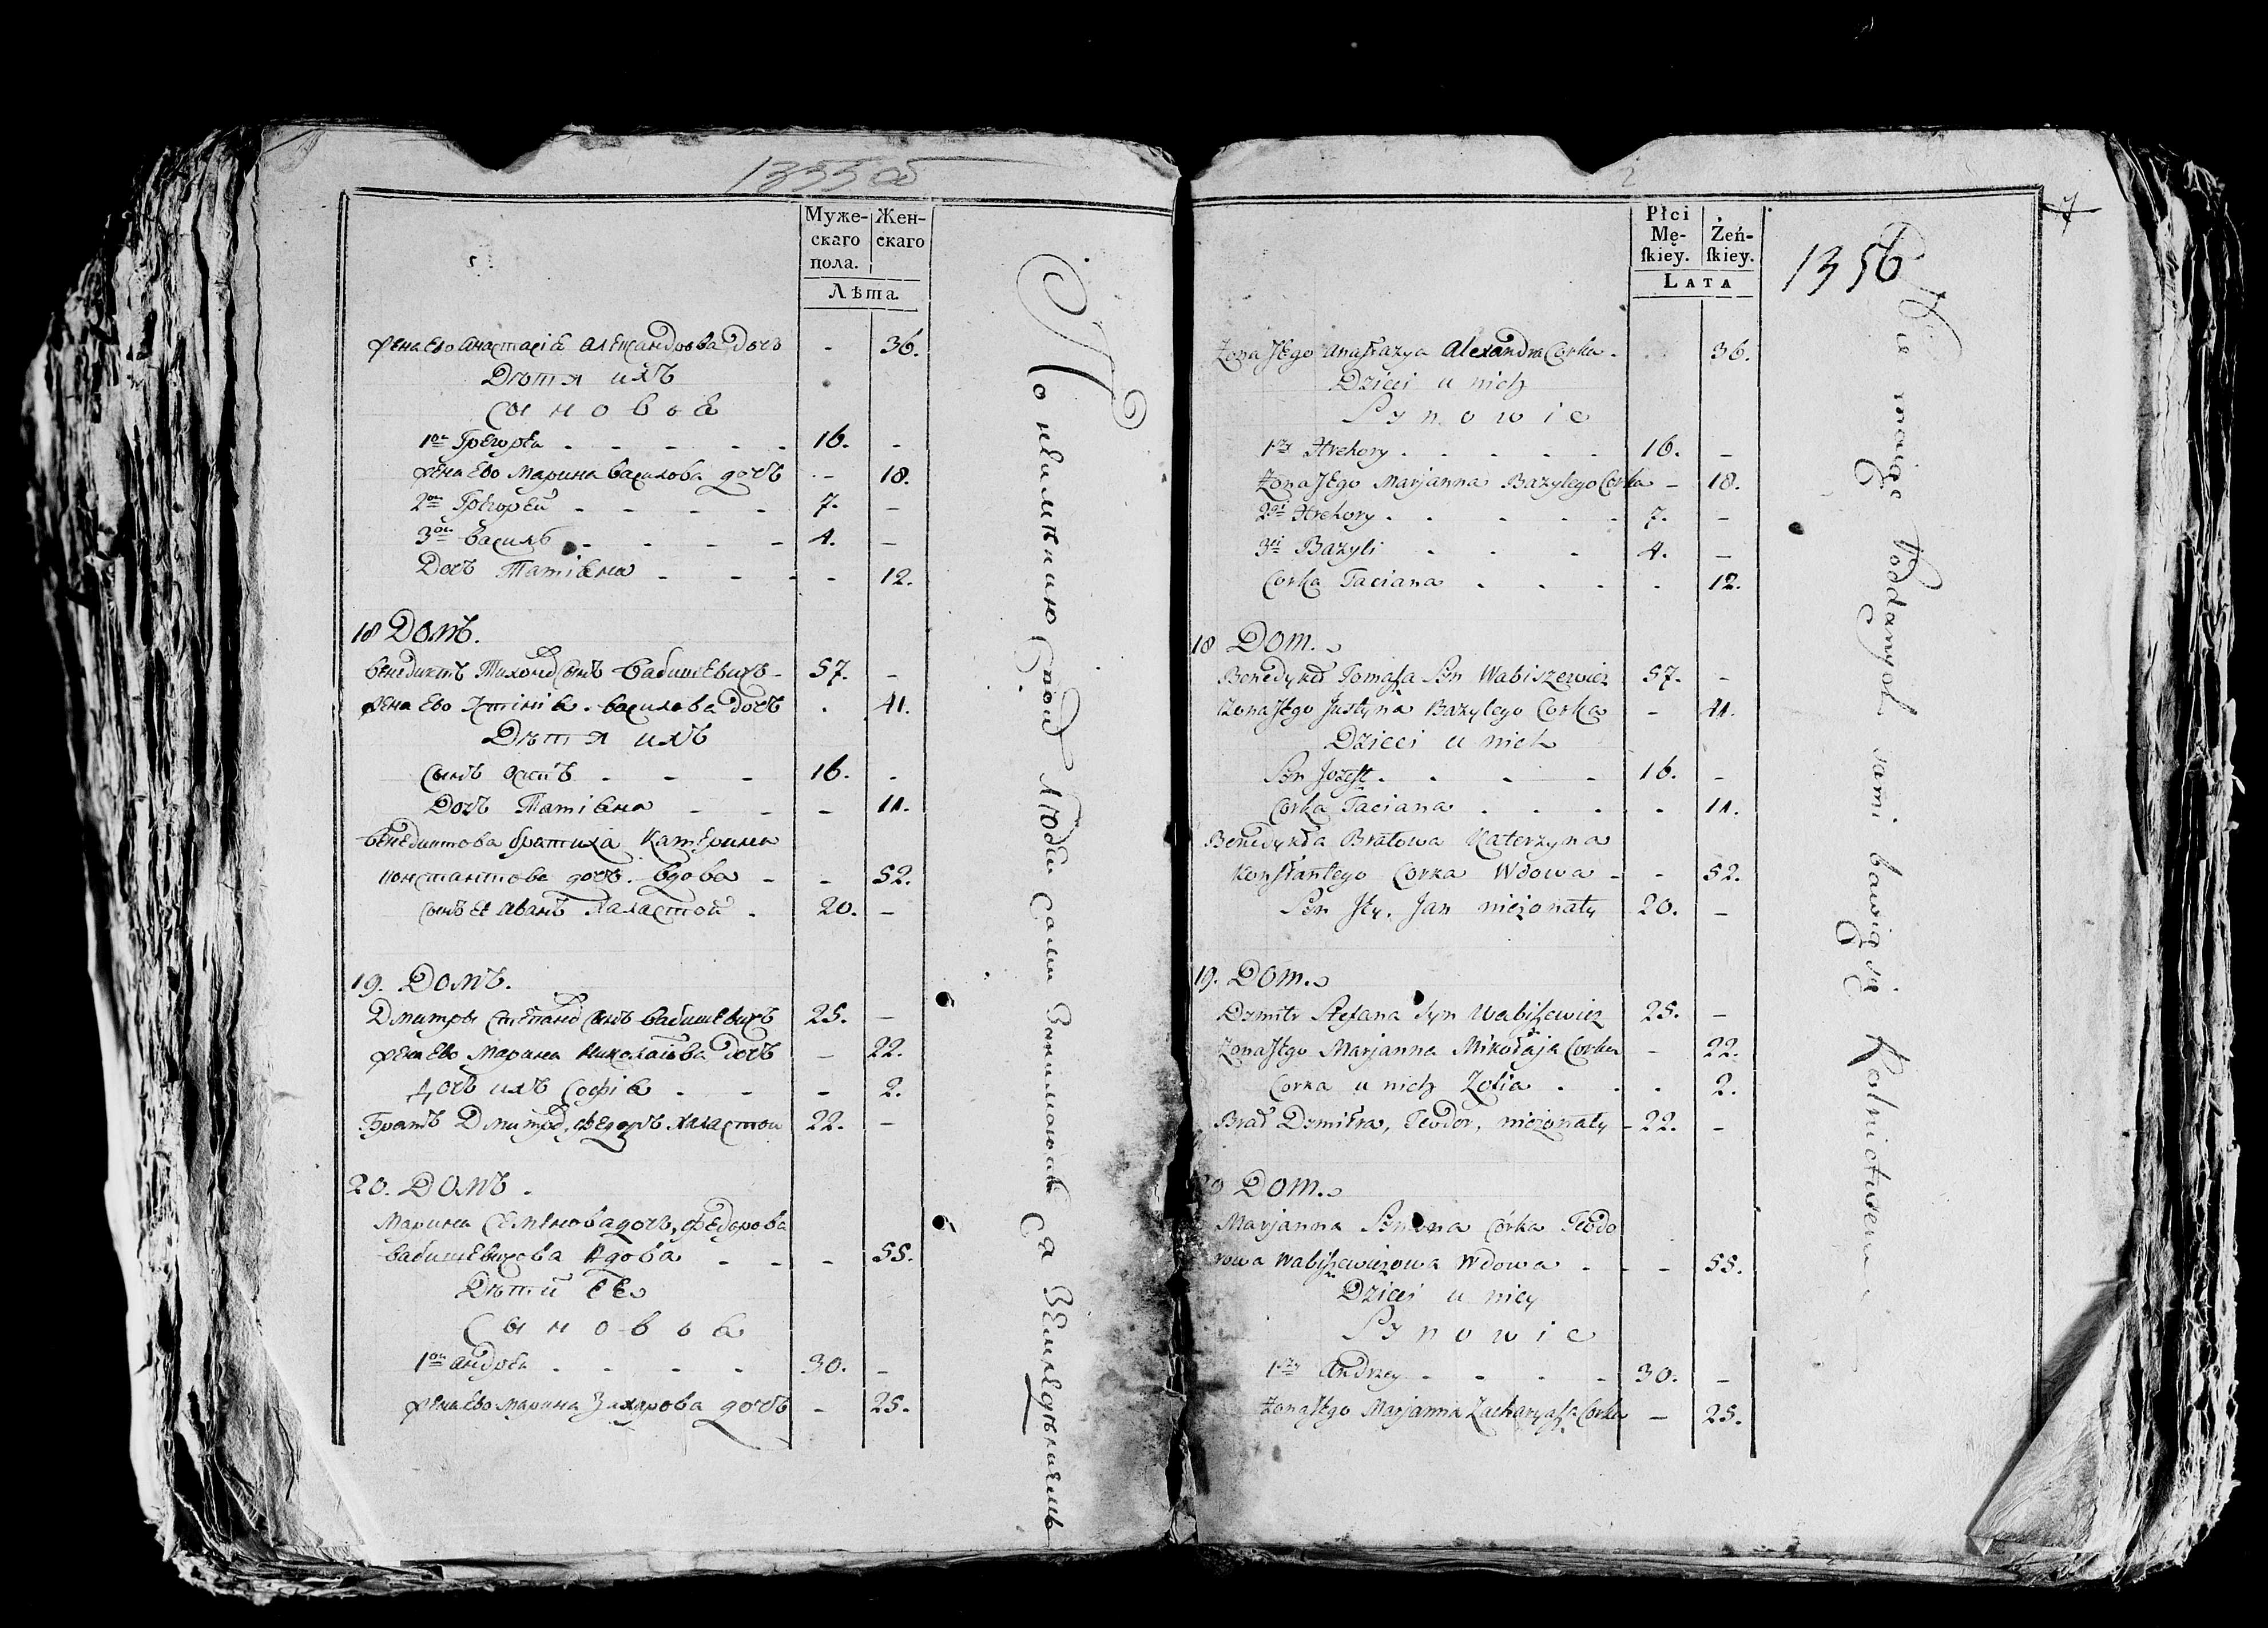 1355 об
Муже-
скаго
пола.
Жен-
скаго
Лѣта
жена Ево Анастасіа Александрова дочъ - 36.
Дѣти ихъ
Сыновьа
1ой Грегорьи 16. -
жена Ево Марина Василова дочъ - 18.
2ой Грегорей 7. -
3ой Василь 4. -
Дочъ Татіана - 12.
18 Домъ.
Венедиктъ Тихонов Сынъ Вабишевичъ 57. -
жена Ево Юстініа Василова дочъ - 41.
Дѣти ихъ
Сынъ Осипъ 16. -
Дочъ Татіана - 11.
Венедиктова братиха Катерина
Константова дочъ вдова - 52.
Сынъ Её Иванъ Халастой 20. -
19. Домъ.
Дмитры Степанов Сынъ Вабишевичъ 25. -
жена Ево Марина Николаіова дочъ - 22.
Дочъ ихъ Софіа - 2.
Братъ Дмитров, Федоръ Халастои 22. -
20. Домъ.
Марина Семенова дочъ, Федорова
Вабишевичова вдова - 55.
Дѣти ЕЕ
Сыновьа
1ой Андреи 30. -
жена Ево Марина Захарова дочъ - 25.
По неимѣнию под людьи сами занимаюцъ Са Земледѣлиемъ
2
7
1356
Płci
Mę-
ſkiey.
Żeń-
ſkiey.
Lata
Żona Jego Anaſtazya Alexandra Corka 36.
Dzieci u nich
Synowie
1szy Hrehory 16. -
Żona Jego Marjanna Bazylego Corka - 18.
2gi Hrehory 7. -
3ci Bazyli 4. -
Corka Taciana - 12.
18 Dom.
Benedykt Tomaſza Syn Wabiszewicz 57. -
Żona Jego Justyna Bazylego Corka - 41.
Dzieci u nich
Syn Jozeff 16. -
Corka Taciana - 11.
Benedykta Bratowa Katerzyna
Konſtantego Corka Wdowa - 52.
Syn Jey, Jan nieżonaty 20. -
19. Dom.
Dzmitr Stefana Syn Wabiſzewicz 25. -
Żona Jego Marjanna Mikołaja Corka - 22.
Corka u nich Zofia - 2.
Brat Dzmitra, Teodor, nieżonaty 22. -
20 Dom.
Marjanna Symona Córka Teodo
rowa Wabiſzewiczowa Wdowa - 55.
Dzieci u niey
Synowie
1szy Andrzey 30. -
Żona Jego Marjanna Zacharyaſza Corka - 25.
Nie maiąc Poddanych sami bawią się Rolnictwem